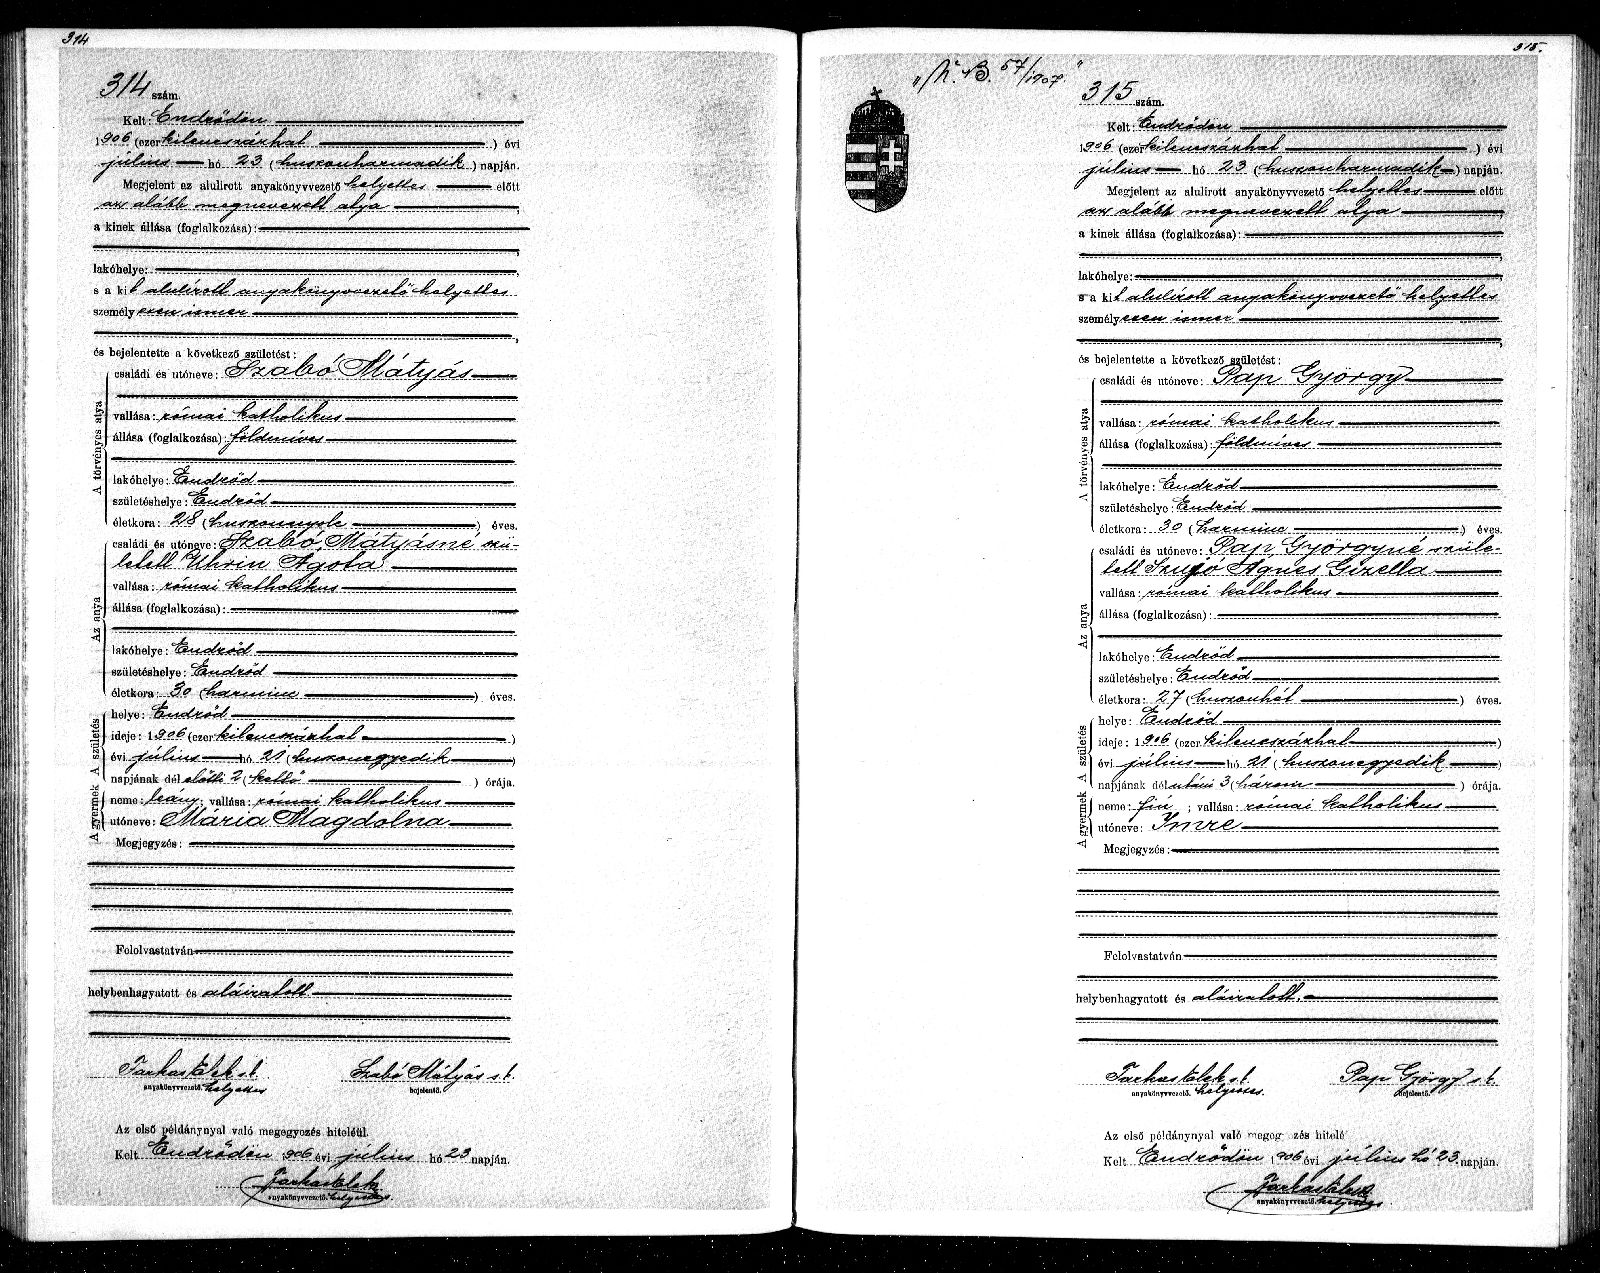 314
314 szám.
Kelt: Endrődön
1906 (ezer kilencszázhat ) évi
július hó 23 (huszonharmadik ) napján.
Megjelent az alulirott anyakönyvvezető helyettes előtt
az alább megnevezett atya ,
a kinek állása (foglalkozása):
,
lakóhelye: ,
s a kit alulírott anyakönyvvezető helyettes
személyesen ismer
,
és bejelentette a következő születést:
A törvényes atya
családi és utóneve: Szabó Mátyás
vallása: római katholikus
állása (foglalkozása): földmíves
lakóhelye: Endrőd
születéshelye: Endrőd
életkora: 28 (huszonnyolc ) éves.
Az anya
családi és utóneve: Szabó Mátyásné szü-
letett Uhrin Ágota
vallása: római katholikus
állása (foglalkozása):
lakóhelye: Endrőd
születéshelye: Endrőd
életkora: 30 (harminc ) éves.
A gyermek A születés
helye: Endrőd
ideje: 1906 (ezer kilencszázhat )
évi július hó 21 (huszonegyedik )
napjának dél előtti 2 (kettő ) órája.
neme: leány; vallása: római katholikus
utóneve: Mária Magdolna
Megjegyzés:
Felolvastatván
helybenhagyatott és aláiratott
Farkas Elek s.k. Szabó Mátyás s.k.
anyakönyvvezető. helyettes bejelentő.
Az első példánynyal való megegyozés hiteléül.
Kelt Endrődön 1906 évi július hó 23 napján.
Farkas Elek
anyakönyvvezető. helyettes
315.
"N. B. 57/1907."
315 szám.
Kelt: Endrődön
1906 (ezer kilencszázhat ) évi
július hó 23 (huszonharmadik ) napján.
Megjelent az alulirott anyakönyvvezető helyettes előtt
az alább megnevezett atya ,
a kinek állása (foglalkozása):
,
lakóhelye: ,
s a kit alulírott anyakönyvvezető helyettes
személyesen ismer
,
és bejelentette a következő születést:
A törvényes atya
családi és utóneve: Pap György
vallása: római katholikus
állása (foglalkozása): földmíves
lakóhelye: Endrőd
születéshelye: Endrőd
életkora: 30 (harminc ) éves.
Az anya
családi és utóneve: Pap Györgyné szüle-
tett Ágnes Gizella
vallása: római katholikus
állása (foglalkozása):
lakóhelye: Endrőd
születéshelye: Endrőd
életkora: 27 (huszonhét ) éves.
A gyermek A születés
helye: Endrőd
ideje: 1906 (ezer kilencszázhat )
évi július hó 21 (huszonegyedik )
napjának dél utáni 3 (három ) órája.
neme: fiú ; vallása: római katholikus
utóneve: Imre
Megjegyzés:
Felolvastatván
helybenhagyatott és aláiratott.
Farkas Elek s.k. Pap György s.k.
anyakönyvvezető. helyettes. bejelentő.
Az első példánynyal való megeg ozés hitelé
Kelt Endrődön 1906 évi július hó 23 napján.
Farkas Elek
anyakönyvvezető. helyettes